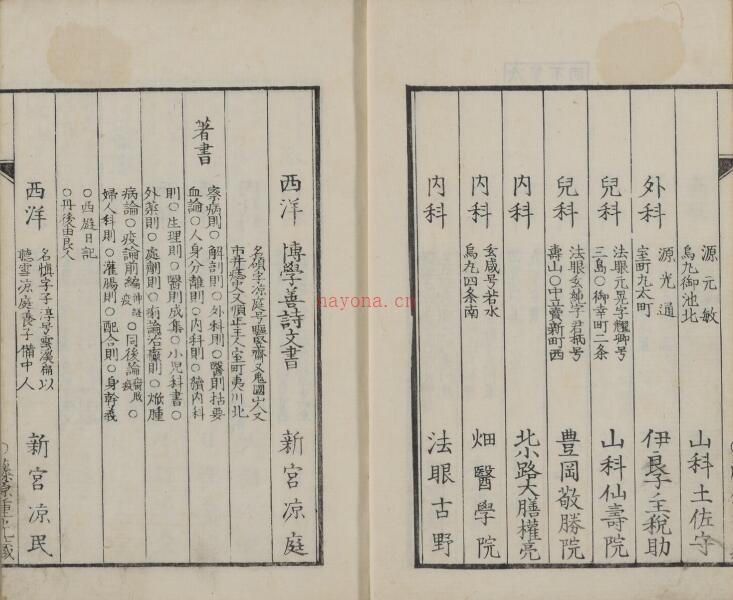 源元敏
烏丸御池北
山科土佐守
外科
源光通
室町丸太町
伊良子主税助
兒科
法眼元晃字耀卿号
三島○御幸町二条
山科仙壽院
兒科
法眼玄
字君
号
壽山○中立賣新町西
豊岡敬勝院
内科
北小路大膳權亮
内科
玄咸号若水
烏丸四条南
畑醫學院
内科
法眼古野
西洋
博學善詩文書
名碩字凉庭号驅豎齋又鬼國山人又
市井
又順正主人室町夷川北
新宮凉庭
著書
察病則○解剖則○外科則○醫則括要
血論○人身分離則○内科則○續内科
則○生理則○醫則成集○小兒科書○
外薬則○處劑則○
論治
則○
腫
病論○疫論前編
○同後論
○
婦人科則○灌腸則○配合則○身幹義
○西遊日記
○丹後由良人
西洋
名慎字子淳号
溪
以
聽雪凉庭養子備中人
新宮凉民
nayona.cn